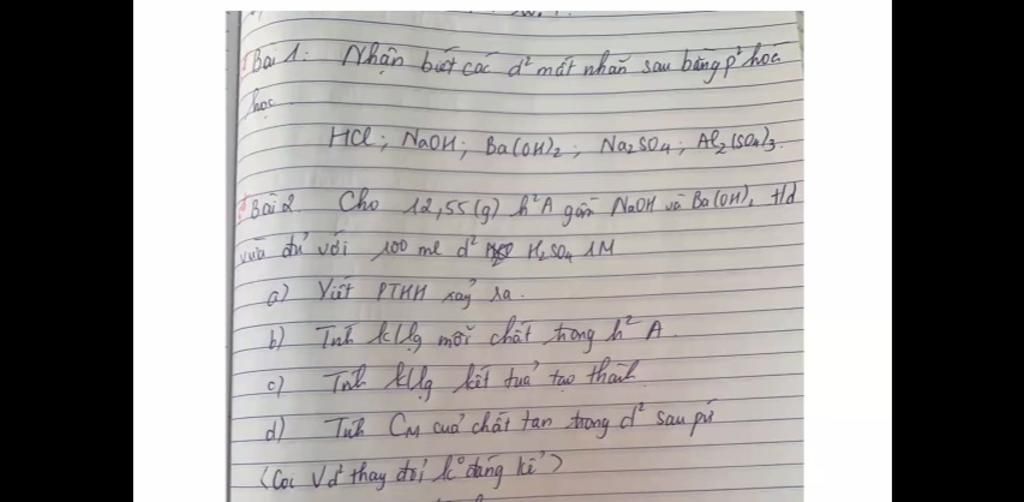 Bài 1: Nhận biết các d² mất nhãn sau bằng p² hoá
học
HCl; NaOH; Ba(OH)₂; Na₂SO₄; Al₂(SO₄)₃.
Bài 2 Cho 12,55(g) h²A gồm NaOH và Ba(OH)₂ t/d
vừa đủ với 100 ml d² H₂SO₄ 1M
a) Viết PTHH xảy ra.
b) Tính klg mỗi chất trong h² A.
c) Tính klg kết tủa tạo thành
d) Tính CM của chất tan trong d² sau pứ
(Coi Vd² thay đổi k° đáng kể)